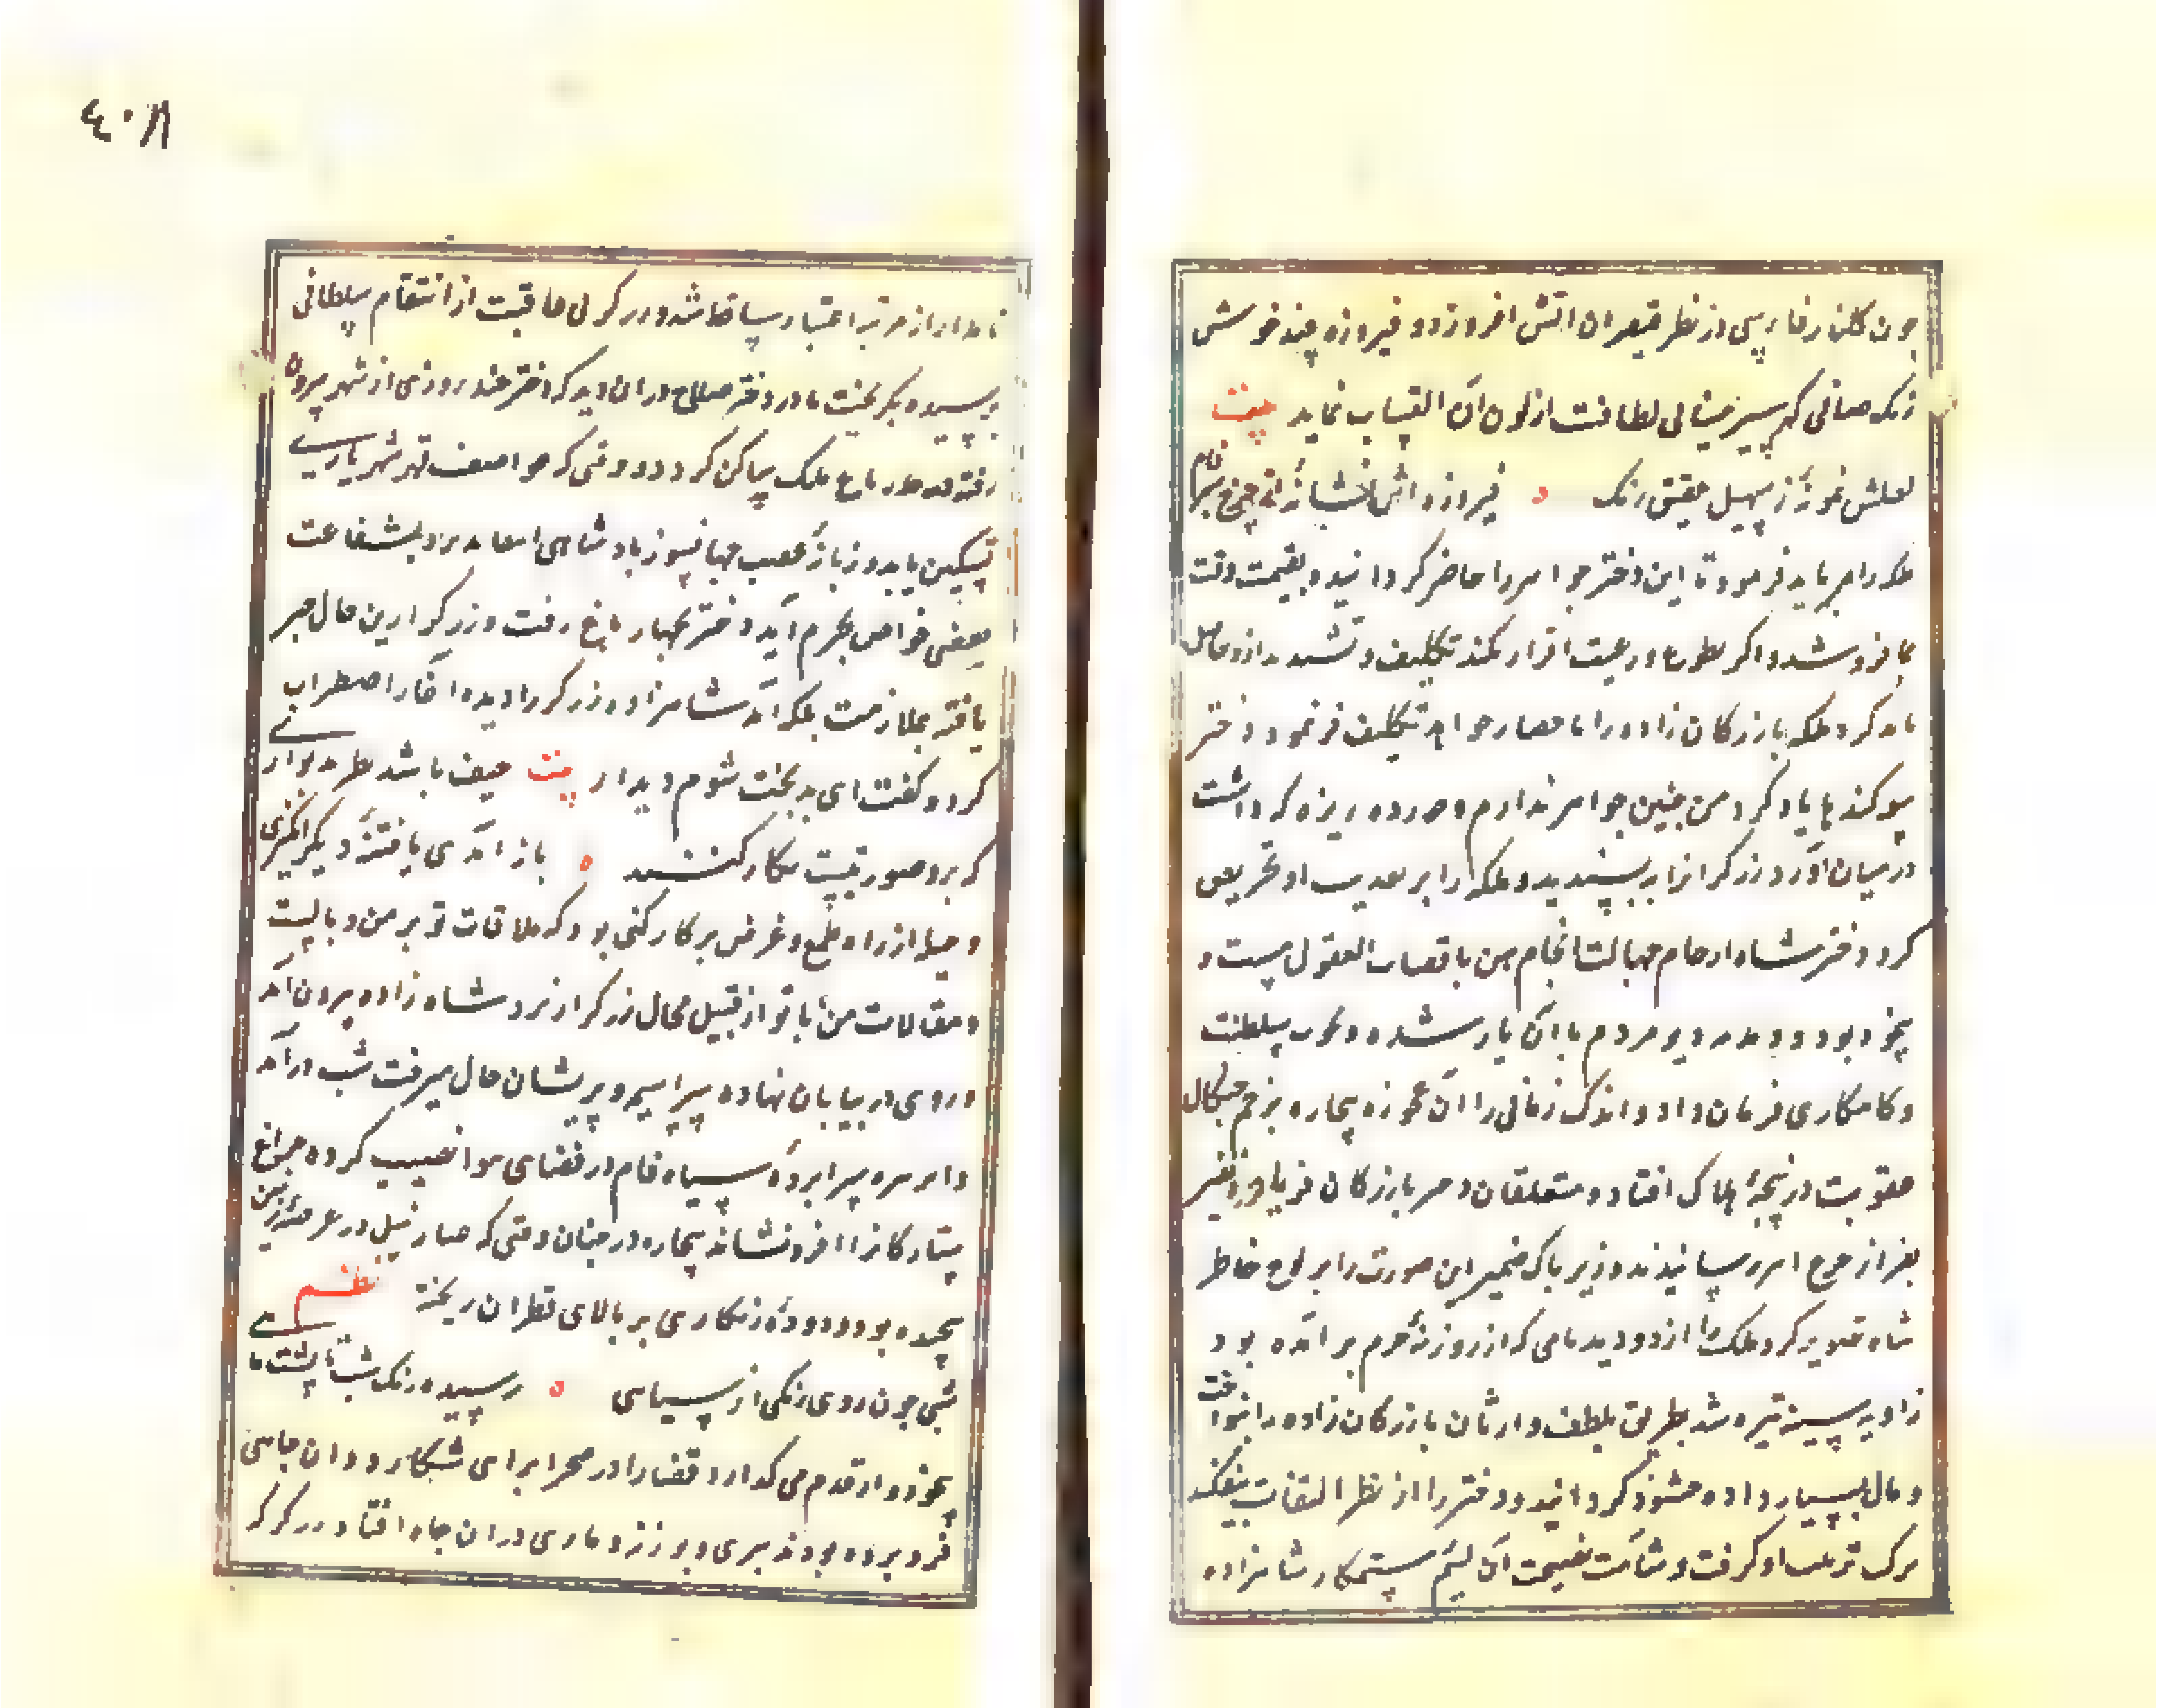 چون گلنار فارسی در نظر مبصران آتش افروزد و فیروزه چند خوش
رنگ صافی که سپهر مینایی لطافت از لون آن اکتساب نماید بیت
لعلش نمونه ز سهیل عقیق رنگ ه فیروزه اش نشانه از چرخ سبز فام
ملکه را می باید فرمود تا این دختر جواهر را حاضر گرداند و بقیمت وقت
بما فروشد و اگر بطوع و رغبت اقرار نکند تکلیف و تشدید ازو حاصل
باید کرد ملکه بازرگان زاده را باحضار جواهر تکلیف فرمود دختر
سوکند یاد کرد من چنین جواهر ندارم و خرده ریزه که داشت
در میان آورد زرگر آنرا نپسندید و ملکه را بر تعذیب او تحریص
کرد دختر شاه از جام جهالت انجام هن ناقصات العقول مست و
بیخود بود و وسوسه دیو مردم با آن یار شده و غرور سلطنت
و کامکاری فرمان داد و اندک زمانی را آن عجوزه بیچاره بزخم چنگال
عقوبت در پنجه هلاک افتاد و متعلقان دختر بازرگان فریاد و نفیر
بفراز چرخ اثیر رسانیدند وزیر پاک ضمیر این صورت را بر لوح خاطر
شاه تصویر کرد ملک را از دود بدنامی که از روزنه حرم برآمده بود
زاویه سینه تیره شد بطریق لطف وارثان بازرگان زاده را بنواخت
و مال بسیار داده خشنود گردانید و دختر را از نظر التفات بیفکند
ترک تربیت او گرفت و شآمت نصیحت آن لئیم ستمکار شاهزاده
نامدار از مرتبه اعتبار ساقط شد و زرگر بی عاقبت از انتقام سلطانی
ترسیده بگریخت مادر دختر صلاح در آن دید که دختر چند روزی از شهر بیرون
رفته در چهار باغ ملک ساکن گردد و وقتی که عواصف قهر شهریاری
تسکین یابد و زبانه غضب جهانسوز پادشاهی انطفا پذیرد بشفاعت
بعضی خواص بحرم آید دختر بچهار باغ رفت و زرگر ازین حال خبر
یافته بملازمت ملکه آمد شاهزاده زرگر را دیده آغاز اضطراب
کرد و گفت ای بدبخت شوم دیدار بیت حیف باشد نظر بدیواری
که برو صورتیست مکار کنند ه باز آمدی تا فتنه دیگر انگیزی
و حیله از راه طمع و غرض بر کار کنی برو که ملاقات تو بر من وبالیست
و مقالات من با تو از قبیل محال زرگر از نزد شاه زاده بیرون آمد
و روی در بیابان نهاده سراسیمه و پریشان حال میرفت شب درآمد
و ابر تیره سراپرده سیاه فام در فضای هوا نصیب کرده چراغ
ستارگانرا فرو نشاند بیچاره در چنان وقتی که غبار نیل در عرصه زمین
پیخته بود و دوده زنگاری بر بالای قطران ریخته نظم
شبی چون روی زنگی از سیاهی ه رسیده رنگ شب تا پشت ماهی
بیخودوار قدم می گذارد قضا را در صحرا برای شکار ددان چاهی
فرو برده بودند ببری و بوزنه و ماری در آن چاه افتاده زرگر که
٤٠٨